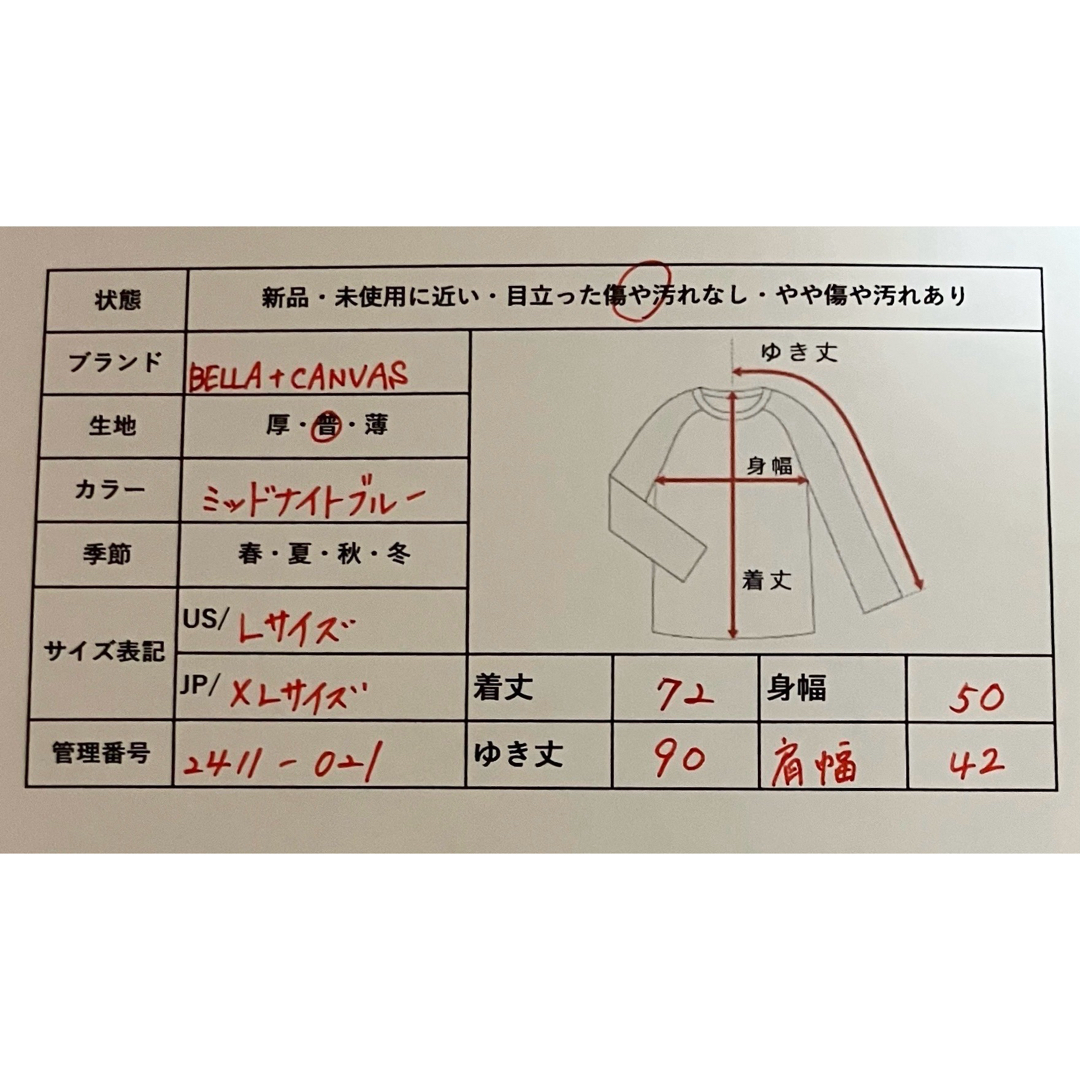 状態 新品・未使用に近い・目立った傷や汚れなし・やや傷や汚れあり
ブランド BELLA+CANVAS
生地 厚・普・薄
カラー ミッドナイトブルー
季節 春・夏・秋・冬
サイズ表記
US/ Lサイズ
JP/ XLサイズ
管理番号 2411-021
ゆき丈
身幅
着丈
着丈 72 身幅 50
ゆき丈 90 肩幅 42